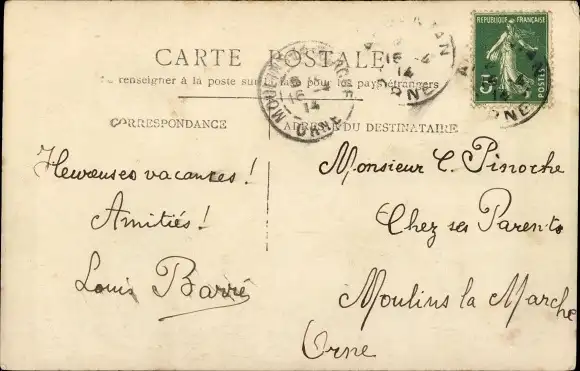 CARTE POSTALE
renseigner à la poste pour les pays étrangers
CORRESPONDANCE
ADRESSE DU DESTINATAIRE
Heureuses vacances!
Amitiés!
Louis Barré
Monsieur C. Pinoche
Chez ses Parents
Moulins la Marche
Orne
RÉPUBLIQUE FRANÇAISE
5c
POSTES
16 -4
14
ORNE
16 -4
14
ORNE